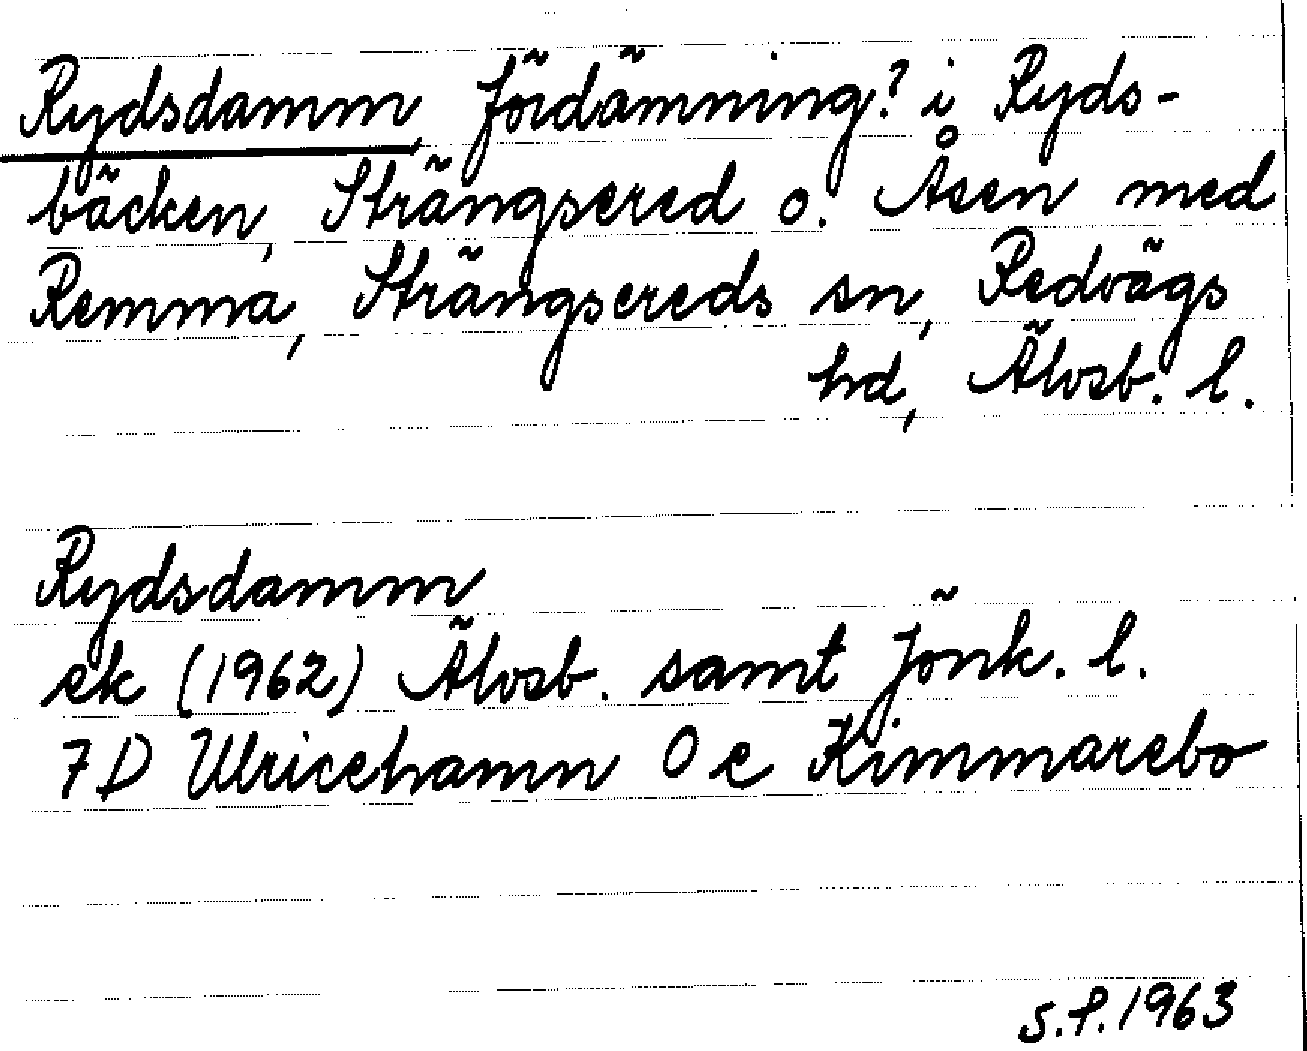 Rydsdamm, fördämning? i Ryds-
bäcken, Strängsered o. Åsen med
Remma, Strängsereds sn, Redvägs
hd, Älvsb. l.
Rydsdamm
ek (1962) Älvsb. samt Jönk. l.
7D Ulricehamn 0 e Kimmarebo
S.P. 1963